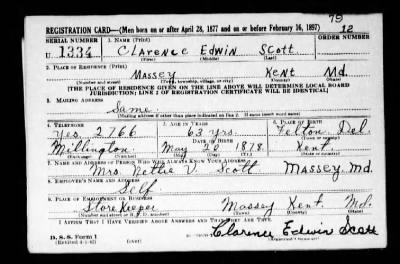 79
REGISTRATION CARD—(Men born on or after April 28, 1877 and on or before February 16, 1897) 12
SERIAL NUMBER 1. NAME (Print) ORDER NUMBER
U 1334 Clarence Edwin Scott
(First) (Middle) (Last)
2. PLACE OF RESIDENCE (Print)
Massey Kent Md.
(Number and street) (Town, township, village, or city) (County) (State)
[THE PLACE OF RESIDENCE GIVEN ON THE LINE ABOVE WILL DETERMINE LOCAL BOARD
JURISDICTION; LINE 2 OF REGISTRATION CERTIFICATE WILL BE IDENTICAL]
3. MAILING ADDRESS
Same.
(Mailing address if other than place indicated on line 2. If same insert word same)
4. TELEPHONE 5. AGE IN YEARS 6. PLACE OF BIRTH
Yes. 2766 63 yrs. Felton Del.
DATE OF BIRTH (Town or county)
Millington May 20 1878. Kent.
(Exchange) (Number) (Mo.) (Day) (Yr.) (State or country)
7. NAME AND ADDRESS OF PERSON WHO WILL ALWAYS KNOW YOUR ADDRESS
Mrs. Nettie V. Scott Massey Md.
8. EMPLOYER'S NAME AND ADDRESS
Self
9. PLACE OF EMPLOYMENT OR BUSINESS
Store Keeper Massey Kent. Md.
(Number and street or R. F. D. number) (Town) (County) (State)
I AFFIRM THAT I HAVE VERIFIED ABOVE ANSWERS AND THAT THEY ARE TRUE.
D. S. S. Form 1
(Revised 4-1-42) (over) Clarence Edwin Scott
(Registrant's signature)